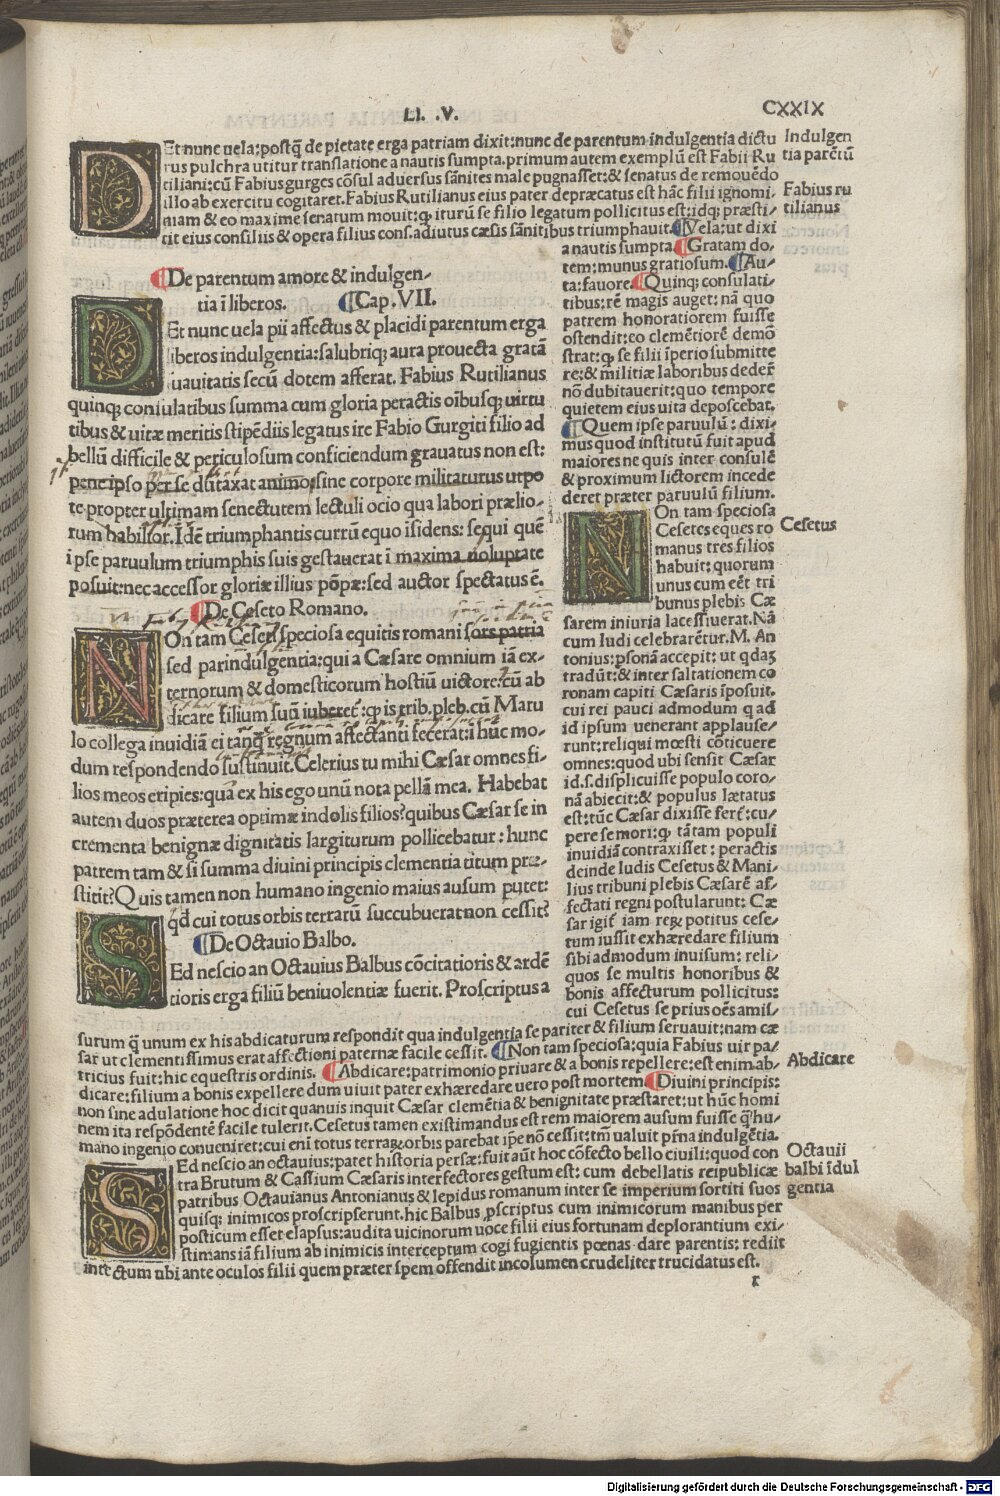 LI. .V.
CXXIX
DEt nunc uela:postq̃ de pietate erga patriam dixit:nunc de parentum indulgentia dictu
rus pulchra utitur translatione a nautis sumpta.primum autem exemplũ est Fabii Ru
tiliani:cũ Fabius gurges cõsul aduersus sãnites male pugnasset:& senatus de remouẽdo
illo ab exercitu cogitaret.Fabius Rutilianus eius pater depræcatus est hãc filii ignomi-
niam & eo maxime senatum mouit:ꝙ iturũ se filio legatum pollicitus est:idqꝫ præsti-
tit eius consiliis & opera filius cons.adiutus cæsis sãnitibus triumphauit.¶Vela:ut dixi
a nautis sumpta.¶Gratam do-
tem:munus gratiosum.¶Au-
ra:fauore.¶Quinqꝫ consulati-
tibus:rẽ magis auget:nã quo
patrem honoratiorem fuisse
ostendit:eo clemẽtiorẽ demõ
strat:ꝙ se filii ĩperio submitte
re:& militiæ laboribus dederẽ
nõ dubitauerit:quo tempore
quietem eius uita deposcebat.
¶Quem ipse paruulũ: dixi-
mus quod institutũ fuit apud
maiores ne quis inter consulẽ
& proximum lictorem incede
deret præter paruulũ filium.
NOn tam speciosa
Cesetes eques ro
manus tres filios
habuit: quorum
unus cum eẽt tri
bunus plebis Cæ
sarem iniuria lacessiuerat.Nã
cum ludi celebrarẽtur.M. An
tonius:ꝑsonã accepit: ut qdaꝫ
tradũt:& inter saltationem co
ronam capiti Cæsaris ĩposuit.
cui rei pauci admodum q ad
id ipsum uenerant applause-
runt:reliqui mœsti cõticuere
omnes:quod ubi sensit Cæsar
id.s.displicuisse populo coro-
nã abiecit:& populus lætatus
est:tũc Cæsar dixisse ferť:cu-
pere se mori:ꝙ tãtam populi
inuidiã contraxisset: peractis
deinde ludis Cesetus & Mani-
lius tribuni plebis Cæsarẽ af-
fectati regni postularunt: Cæ
sar igiť iam reꝝ potitus cese-
tum iussit exhæredare filium
sibi admodum inuisum: reli-
quos se multis honoribus &
bonis affecturum pollicitus:
cui Cesetus se prius oẽs amis-
¶De parentum amore & indulgen-
tia ĩ liberos. ¶Cap.VII.
DEt nunc uela pii affectus & placidi parentum erga
liberos indulgentia:salubriqꝫ aura prouecta gratã
suauitatis secũ dotem afferat. Fabius Rutilianus
quinqꝫ consulatibus summa cum gloria peractis oĩbusqꝫ uirtu
tibus & uitæ meritis stipẽdiis legatus ire Fabio Gurgiti filio ad
bellũ difficile & periculosum conficiendum grauatus non est:
pene ipso per se dũtaxat animo:sine corpore militaturus utpo
te propter ultimam senectutem lectuli ocio qua labori prælio-
rum habilior.Idẽ triumphantis currũ equo ĩsidens: sequi quẽ
ipse paruulum triumphis suis gestauerat ĩ maxima uoluptate
posuit:nec accessor gloriæ illius põpæ:sed auctor spectatus ẽ.
¶De Ceseto Romano.
NOn tam Ceseti speciosa equitis romani sors patria
sed parindulgentia:qui a Cæsare omnium iã ex-
ternorum & domesticorum hostiũ uictore:cũ ab
dicare filium suũ iubereť:ꝙ is trib.pleb.cũ Maru
lo collega inuidiã ei tanq̃ regnum affectanti fecerat:ĩ huc mo-
dum respondendo sustinuit.Celerius tu mihi Cæsar omnes fi-
lios meos eripies:quã ex his ego unũ nota pellã mea. Habebat
autem duos præterea optimæ indolis filios?quibus Cæsar se in
crementa benignæ dignitatis largiturum pollicebatur: hunc
patrem tam & si summa diuini principis clementia titum præ-
stitit?Quis tamen non humano ingenio maius ausum putet:
qđ cui totus orbis terrarũ succubuerat non cessit?
¶De Octauio Balbo.
SEd nescio an Octauius Balbus cõcitatioris & ardẽ
tioris erga filiũ beniuolentiæ fuerit. Proscriptus a
surum q̃ unum ex his abdicaturum respondit qua indulgentia se pariter & filium seruauit:nam cæ
sar ut clementissimus erat affectioni paternæ facile cessit. ¶Non tam speciosa:quia Fabius uir pa-
tricius fuit:hic equestris ordinis. ¶Abdicare:patrimonio priuare & a bonis repellere:est enim ab-
dicare:filium a bonis expellere dum uiuit pater exhæredare uero post mortem.¶Diuini principis:
non sine adulatione hoc dicit quanuis inquit Cæsar clemẽtia & benignitate præstaret:ut hũc homi
nem ita respõdentẽ facile tulerit.Cesetus tamen existimandus est rem maiorem ausum fuisse q̃ hu-
mano ingenio conueniret:cui enĩ totus terraꝝ orbis parebat ip̃e nõ cessit:tm̃ ualuit pr̃na indulgẽtia.
SEd nescio an octauius:patet historia persæ:fuit aũt hoc cõfecto bello ciuili:quod con
tra Brutum & Cassium Cæsaris interfectores gestum est: cum debellatis reipublicæ
patribus Octauianus Antonianus & lepidus romanum inter se imperium sortiti suos
quisqꝫ inimicos proscripserunt.hic Balbus ꝓscriptus cum inimicorum manibus per
posticum esset elapsus:audita uicinorum uoce filii eius fortunam deplorantium exi-
stimans iã filium ab inimicis interceptum cogi fugientis pœnas dare parentis: rediit
in tectum ubi ante oculos filii quem præter spem offendit incolumen crudeliter trucidatus est.
r
Indulgen
tia parẽtũ
Fabius ru
tilianus
Cesetus
Abdicare
Octauii
balbi ĩdul
gentia
Digitalisierung gefördert durch die Deutsche Forschungsgemeinschaft - DFG